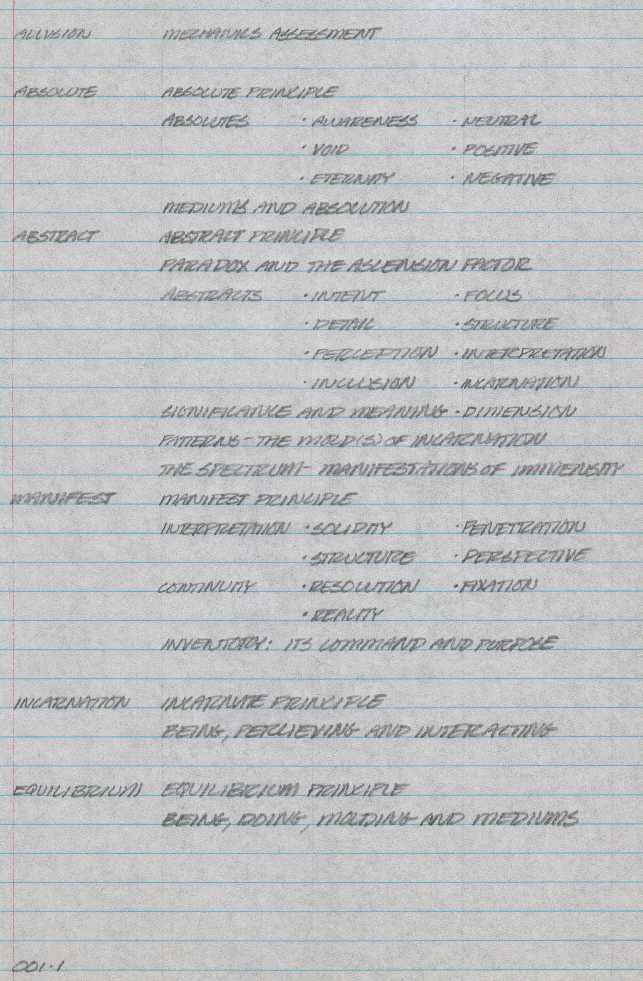 ALLUSION MECHANICS ASSESSMENT
ABSOLUTE ABSOLUTE PRINCIPLE
ABSOLUTES · AWARENESS · NEUTRAL
· VOID · POSITIVE
· ETERNITY · NEGATIVE
MEDIUMS AND ABSOLUTION
ABSTRACT ABSTRACT PRINCIPLE
PARADOX AND THE ASCENSION FACTOR
ABSTRACTS · INTENT · FOCUS
· DETAIL · STRUCTURE
· PERCEPTION · INTERPRETATION
· INCLUSION · INCARNATION
SIGNIFICANCE AND MEANING · DIMENSION
PATTERNS - THE MOLD(S) OF INCARNATION
THE SPECTRUM - MANIFESTATIONS OF IMMENSITY
MANIFEST MANIFEST PRINCIPLE
INTERPRETATION · SOLIDITY · PENETRATION
· STRUCTURE · PERSPECTIVE
CONTINUITY · RESOLUTION · FIXATION
· REALITY
INVENTORY: ITS COMMAND AND PURPOSE
INCARNATION INCARNATE PRINCIPLE
BEING, PERCIEVING AND INTERACTING
EQUILIBRIUM EQUILIBRIUM PRINCIPLE
BEING, DOING, MOLDING AND MEDIUMS
001·1